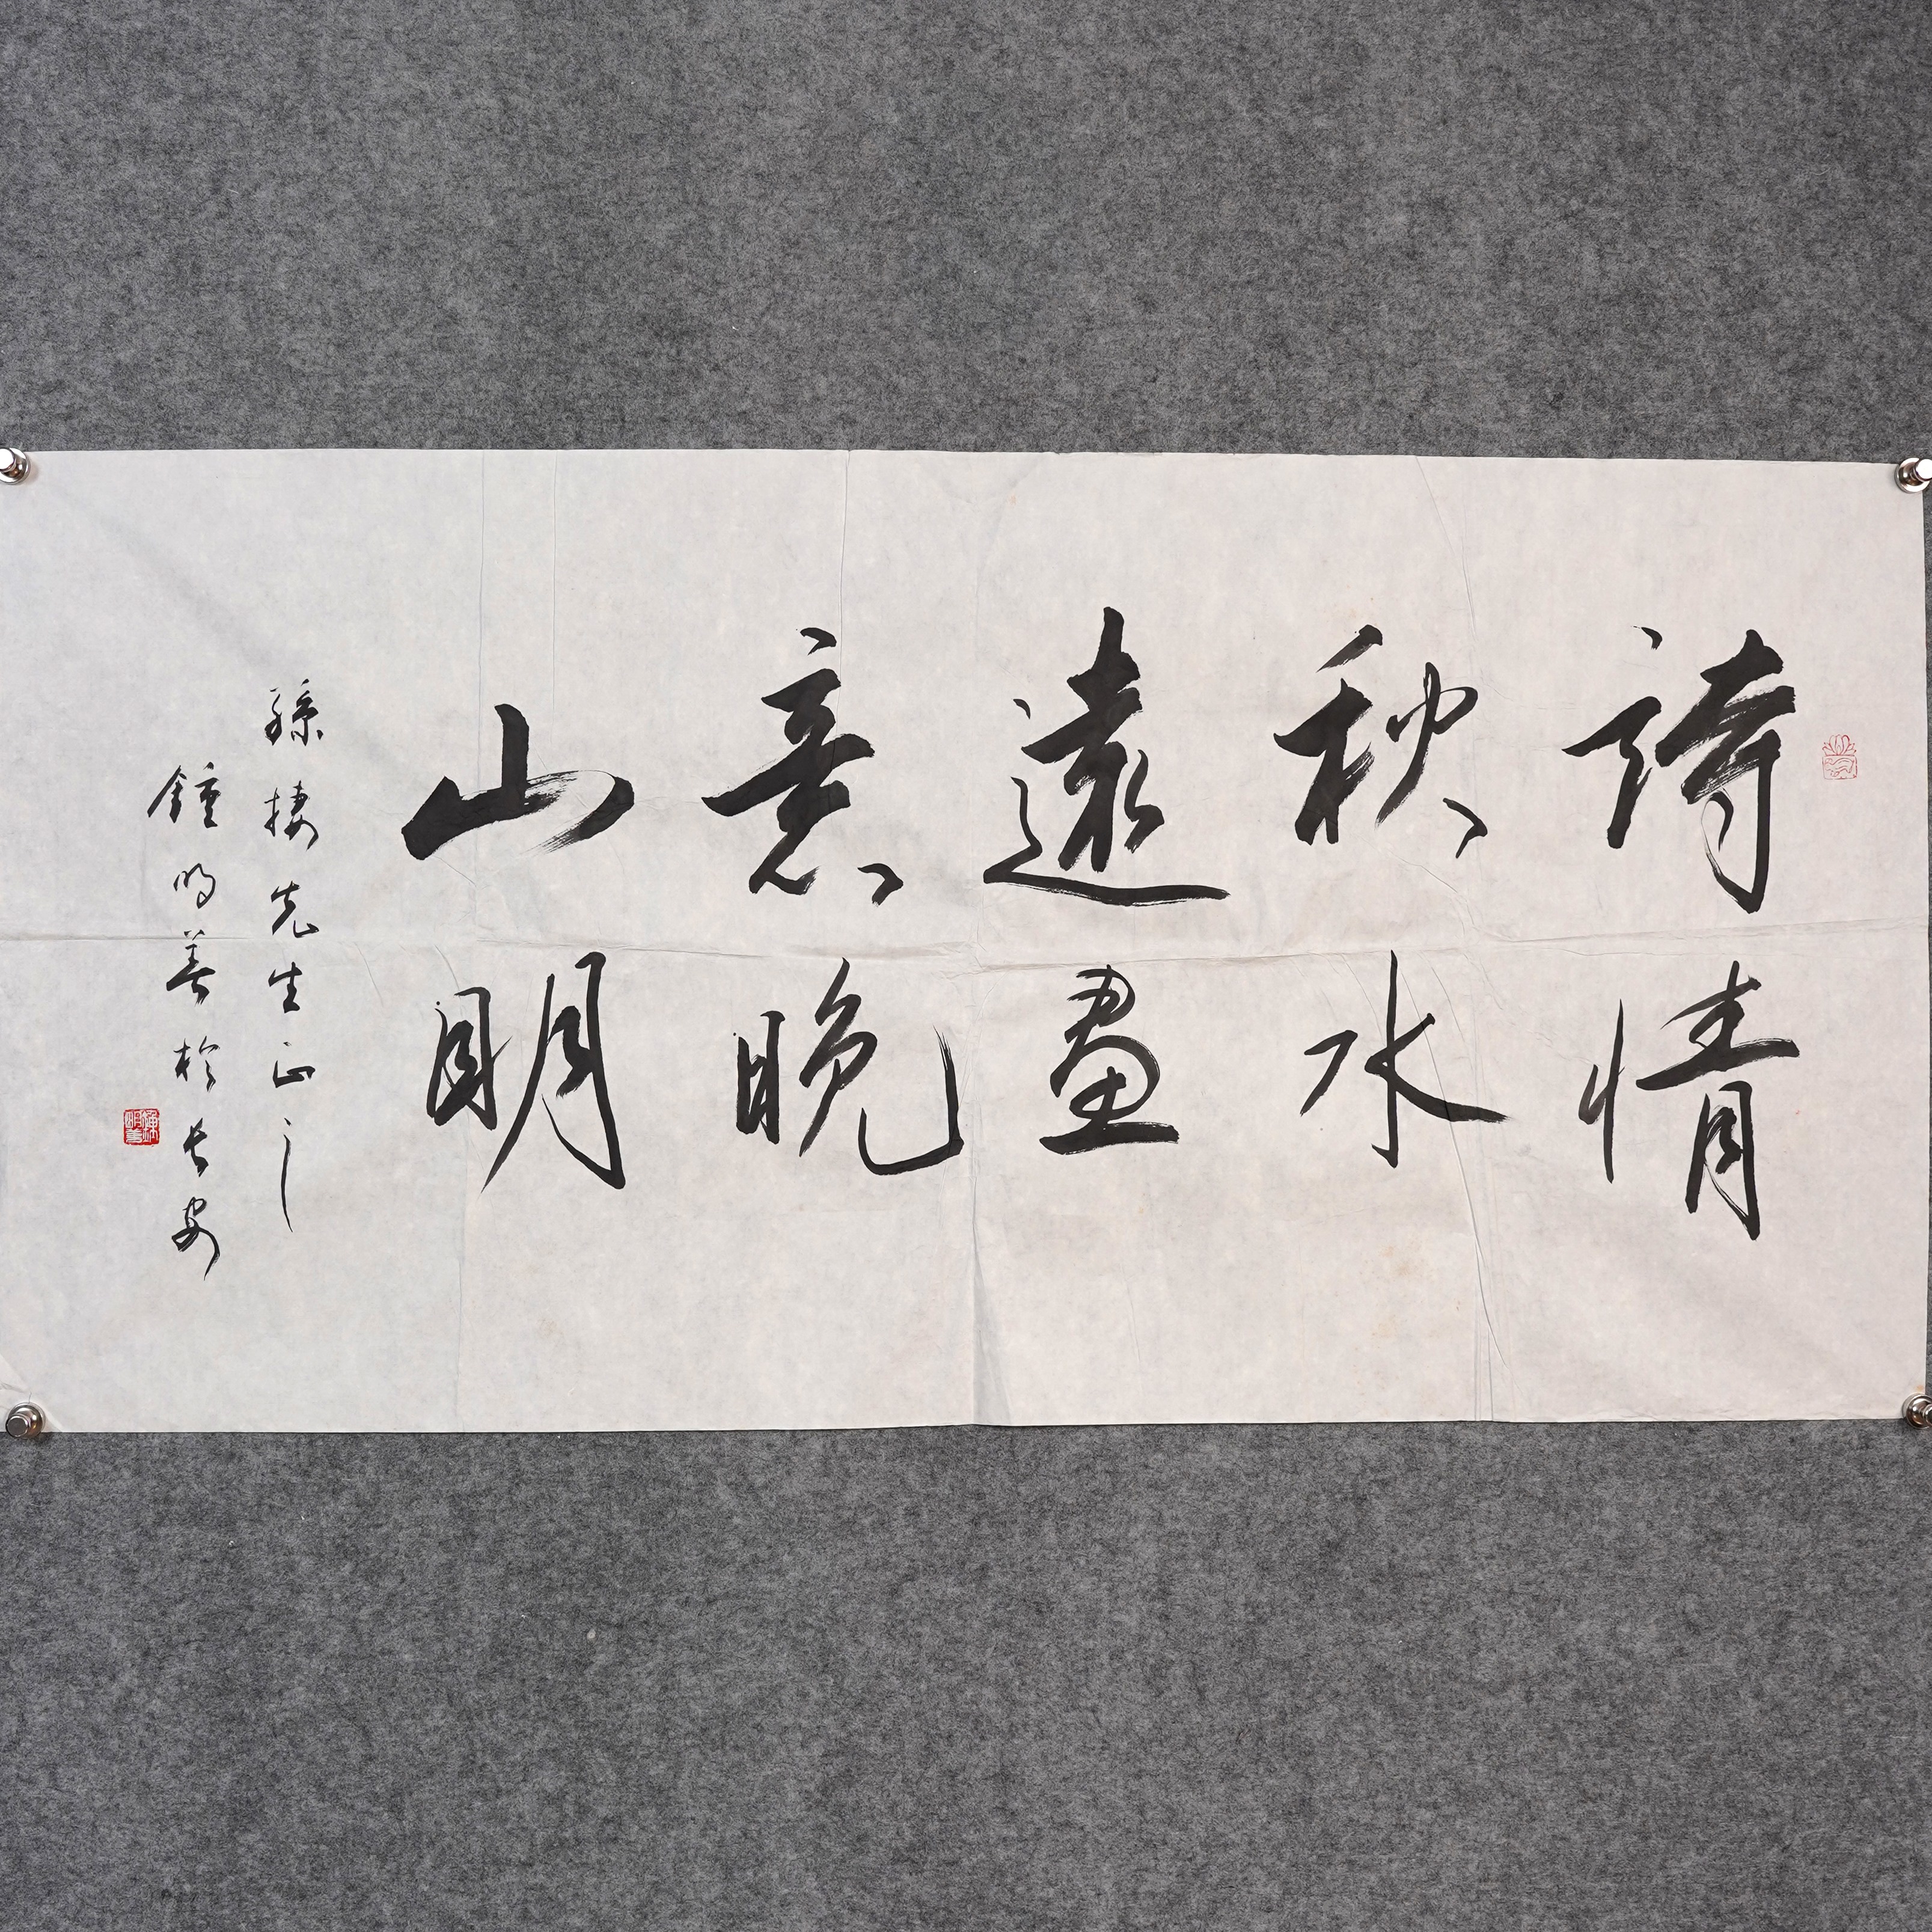 詩情
秋水
遠畫
意晚
山明
孫棲先生正之
鍾明善於長安
鍾明善